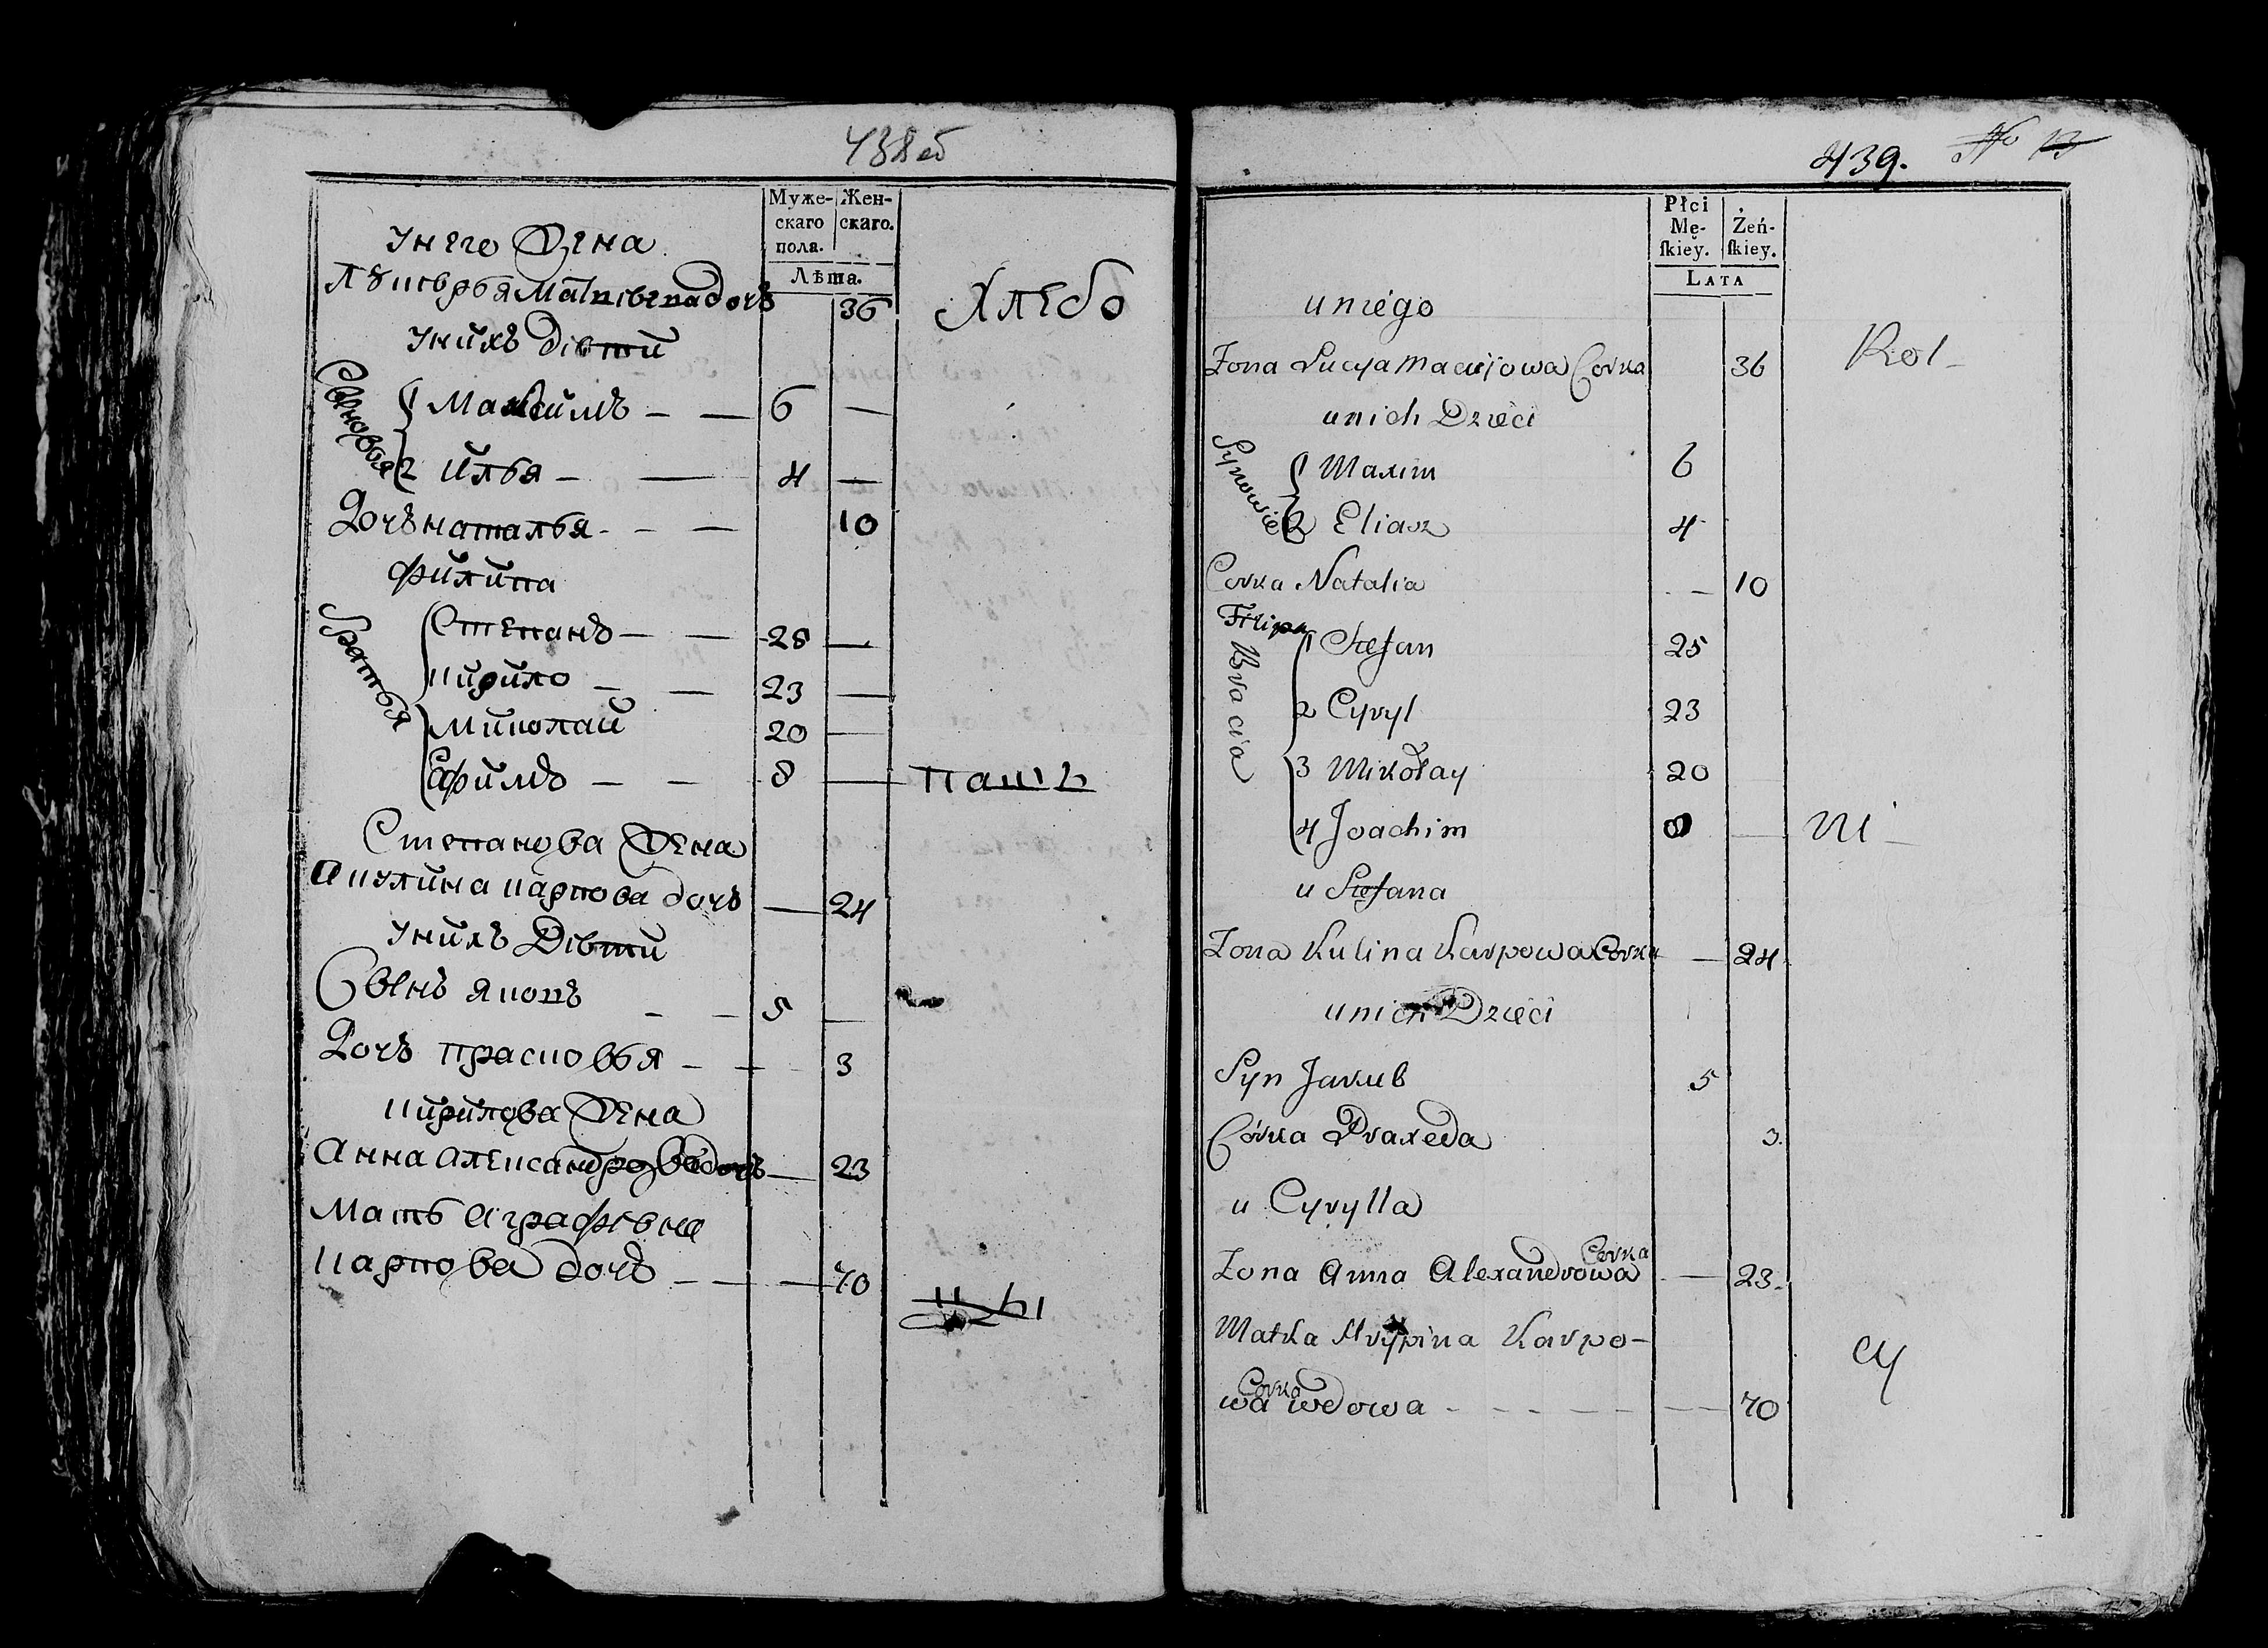 438 об
Муже-
скаго
пола.
Жен-
скаго.
Лѣта.
у него Жена
Матвѣева дочь 36
Хлебо
у нихъ Дѣти
Сыновья
1 Максимъ — — 6 —
2 Илья — — 4 —
Дочь наталья - - — 10
Филипа
братья
Степанъ — — 28 —
кирило — — 23 —
Миколаи 20 —
Ефимъ — — 8 — паш
Степанова Жена
Акулина карпова дочь — 24
у нихъ Дѣти
Сынъ якопъ - — 5 —
Дочь прасковья — — 3
кирилова Жена
Анна Александрова дочь — 23
Мать Аграфѣна
карпова дочь — — — 70
цы
439. No 13
Płci
Mę-
skiey.
Żeń-
skiey.
LATA
u niego
Żona Łucya Maciejowa Corka 36
Rol-
u nich Dzieci
Synowie
1 Maxim 6
2 Eliasz 4
Corka Natalia - — 10
Filipa
Bracia
1 Stefan 25
2 Cyryl 23
3 Mikołay 20
4 Joachim 8 — ni-
u Stefana
Żona Kulina Karpowa Corka — 24
u nich Dzieci
Syn Jakub 5
Córka Praxeda 3.
u Cyrylla
Żona Anna Alexandrowa Corka — 23.
Matka Karpo-
wa Corka wdowa - - - - — — 70
cy